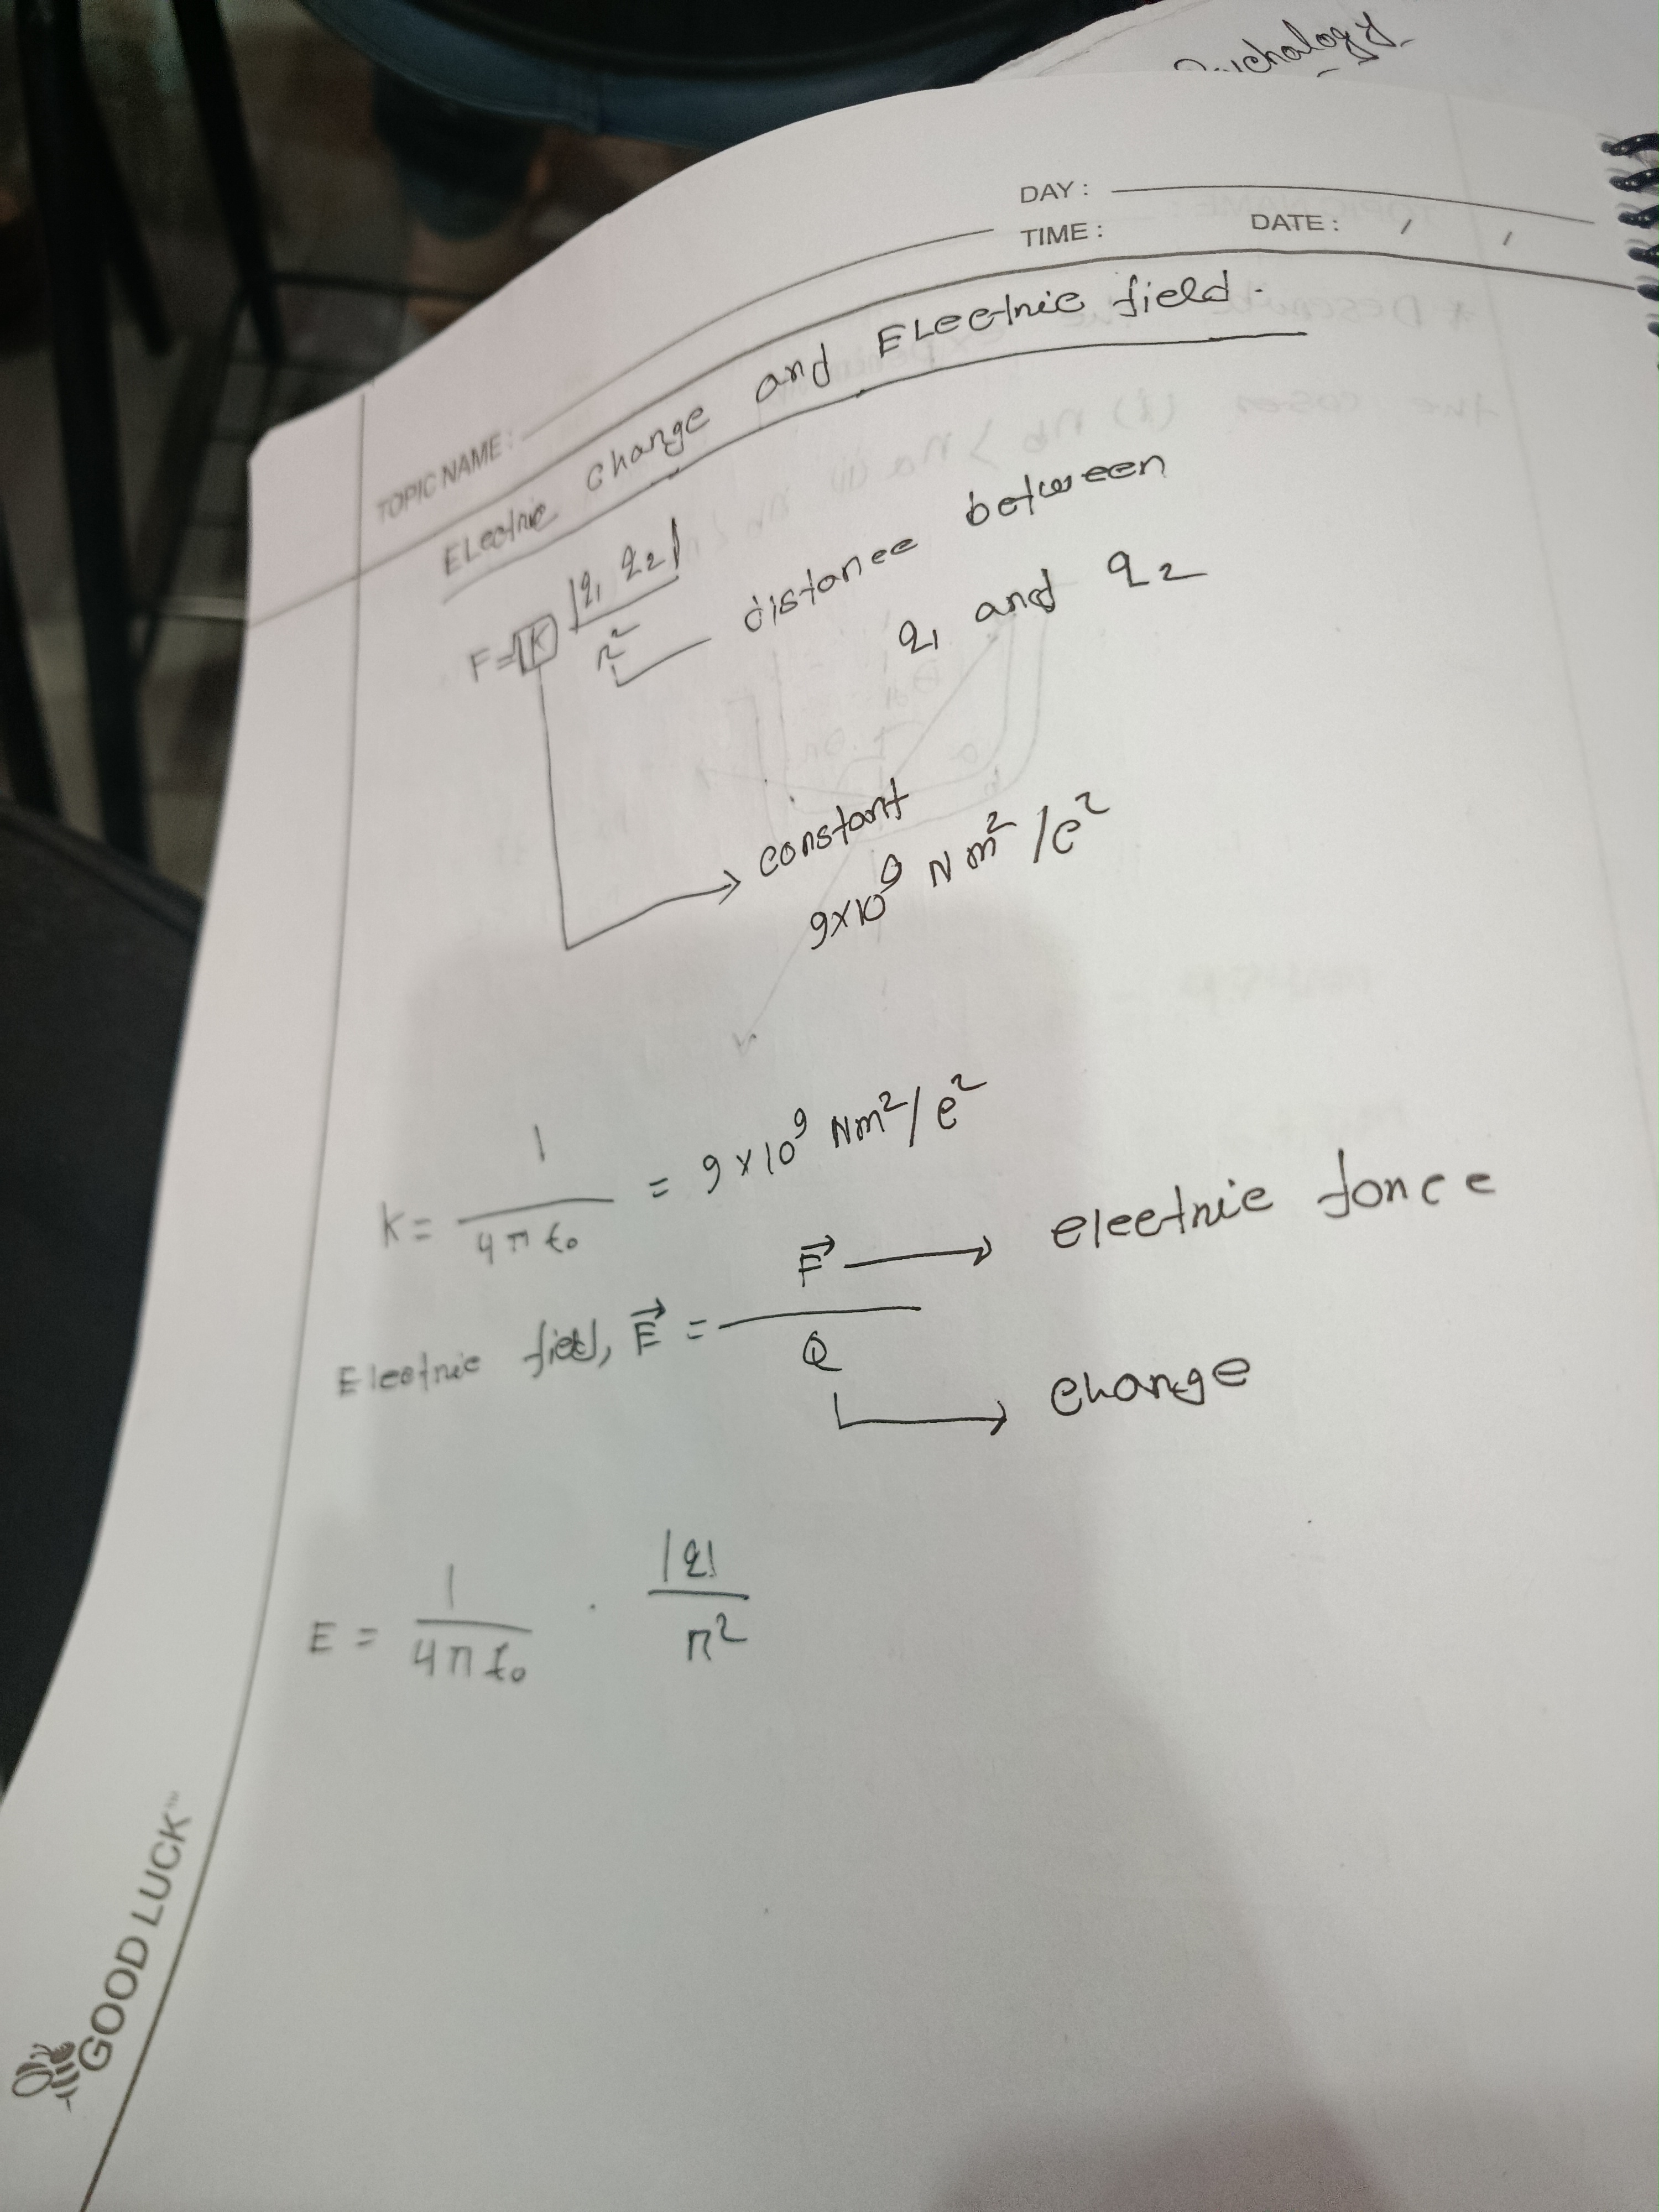 Psychology
DAY :
TIME : DATE : / /
TOPIC NAME :
Electric charge and Electric field.
F = K |q₁ q₂| / r²
distance between
q₁ and q₂
constant
9×10⁹ Nm²/c²
K = 1 / 4πε₀ = 9×10⁹ Nm²/c²
Electric field, E⃗ = F⃗ / Q
electric force
charge
E = 1 / 4πε₀ · |q| / r²
GOOD LUCK™